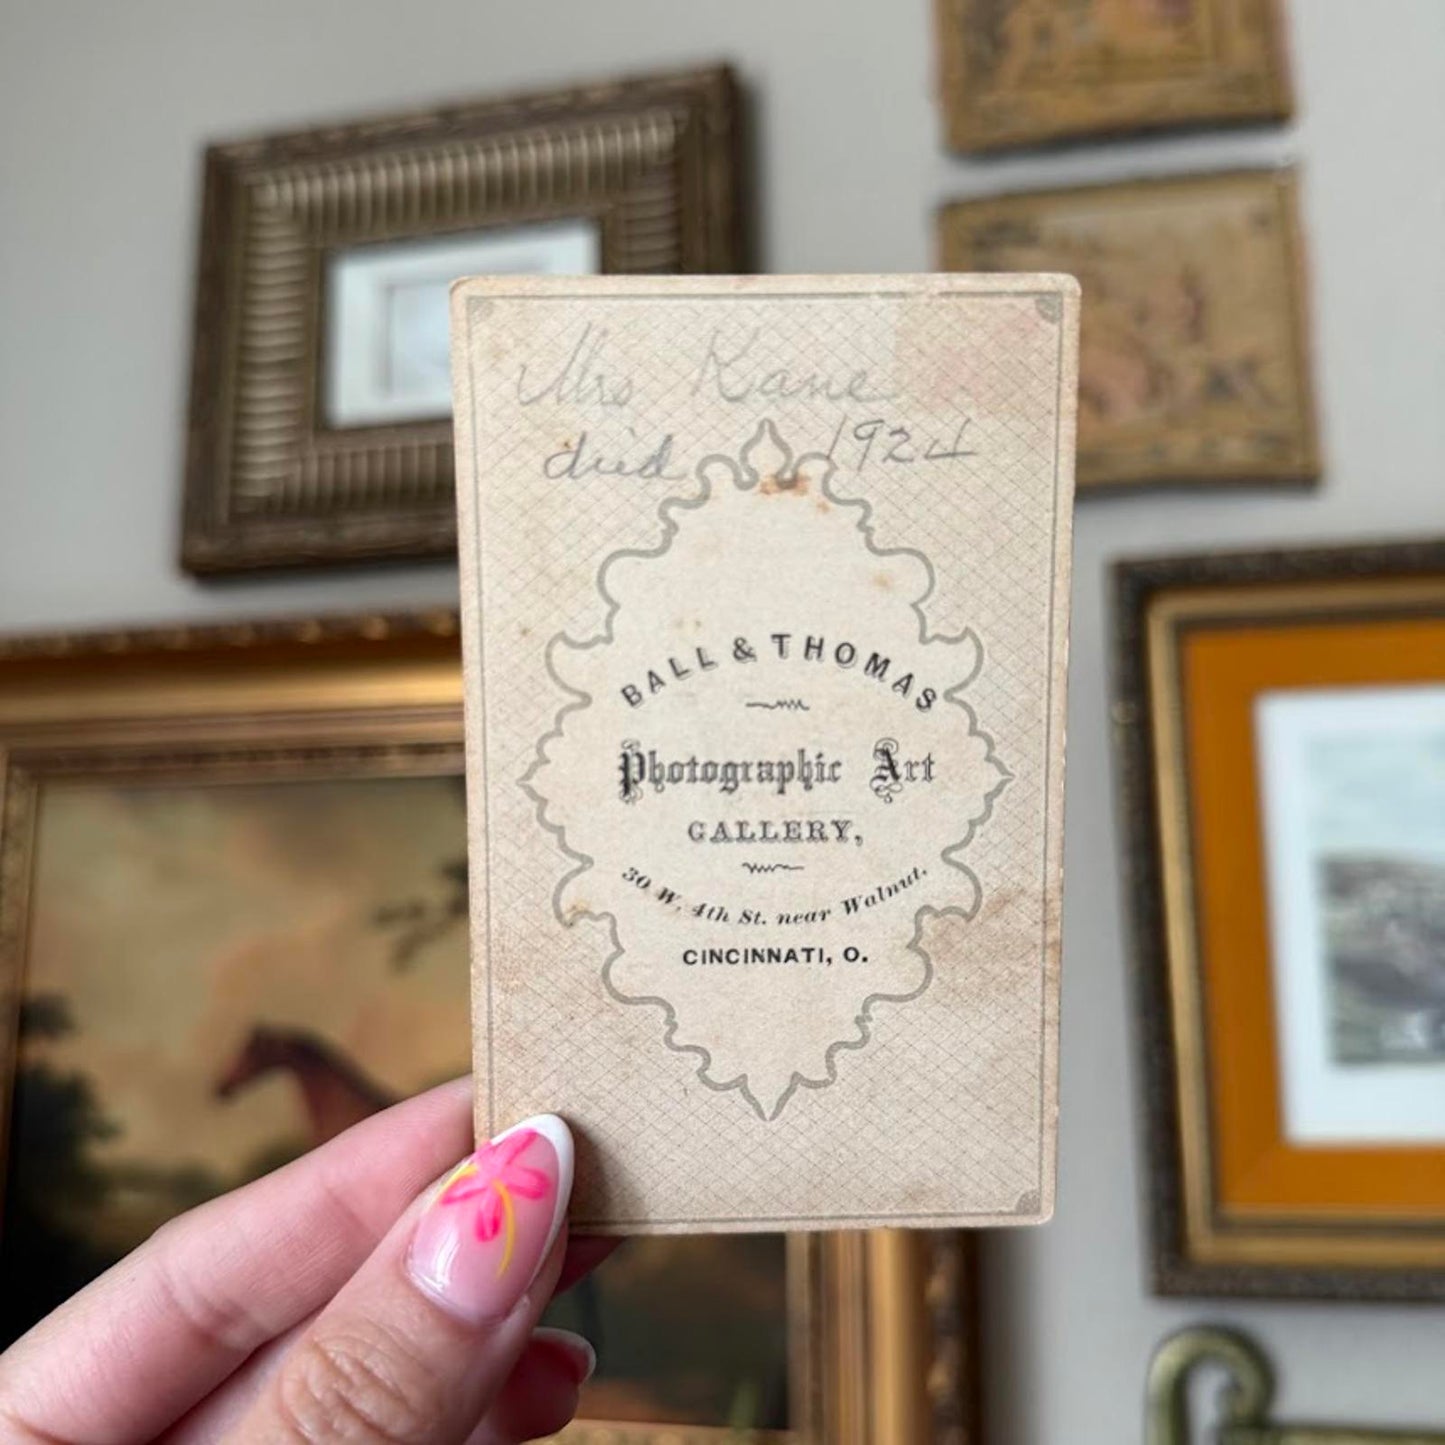 Mrs Kane
died 1924
BALL & THOMAS
Photographic Art
GALLERY,
30 W. 4th St. near Walnut.
CINCINNATI, O.